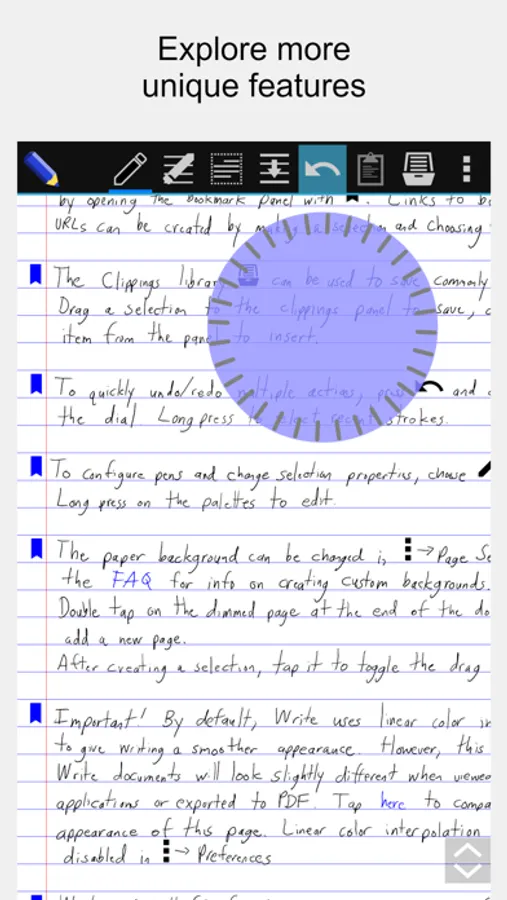 Explore more
unique features
by opening the bookmark panel with . Links to
URLs can be created by making a selection and choosing
The Clippings library can be used to save commonly
Drag a selection to the clippings panel to save,
item from the panel to insert.
To quickly undo/redo multiple actions, press and
the dial. Long press to select recent strokes.
To configure pens and change selection properties, choose
Long press on the palettes to edit.
The paper background can be changed in → Page Se
the FAQ for info on creating custom backgrounds.
Double tap on the dimmed page at the end of the do
add a new page.
After creating a selection, tap it to toggle the drag
Important! By default, Write uses linear color in
to give writing a smoother appearance. However, this
Write documents will look slightly different when viewe
applications or exported to PDF. Tap here to compa
appearance of this page. Linear color interpolation
disabled in → Preferences